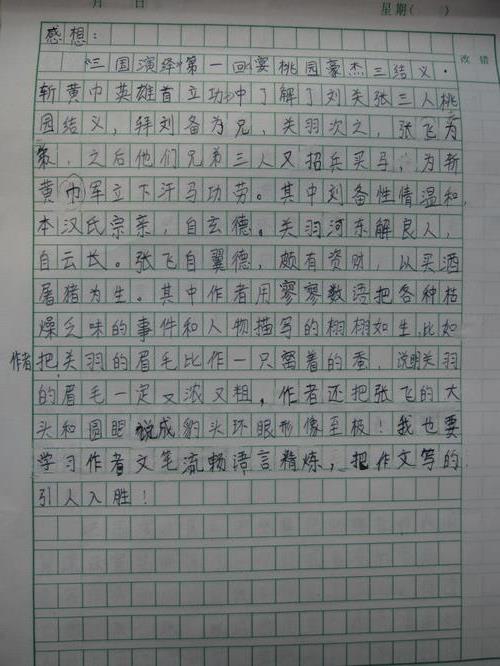 月 日 星期( )
感想： 改错
《三国演绎》第一回宴桃园豪杰三结义·
斩黄巾英雄首立功中了解了刘关张三人桃
园结义，拜刘备为兄，关羽次之，张飞为
第，之后他们兄弟三人又招兵买马，为斩
黄巾军立下汗马功劳。其中刘备性情温和，
本汉氏宗亲，自玄德。关羽河东解良人，
自云长。张飞自翼德，颇有资财，以买酒
屠猪为生。其中作者用寥寥数语把各种枯
燥乏味的事件和人物描写的栩栩如生，比如
作者把关羽的眉毛比作一只卧着的蚕，说明关羽
的眉毛一定又浓又粗，作者还把张飞的大
头和圆眼说成豹头环眼形像至极！我也要
学习作者文笔流畅语言精炼，把作文写的
引人入胜！